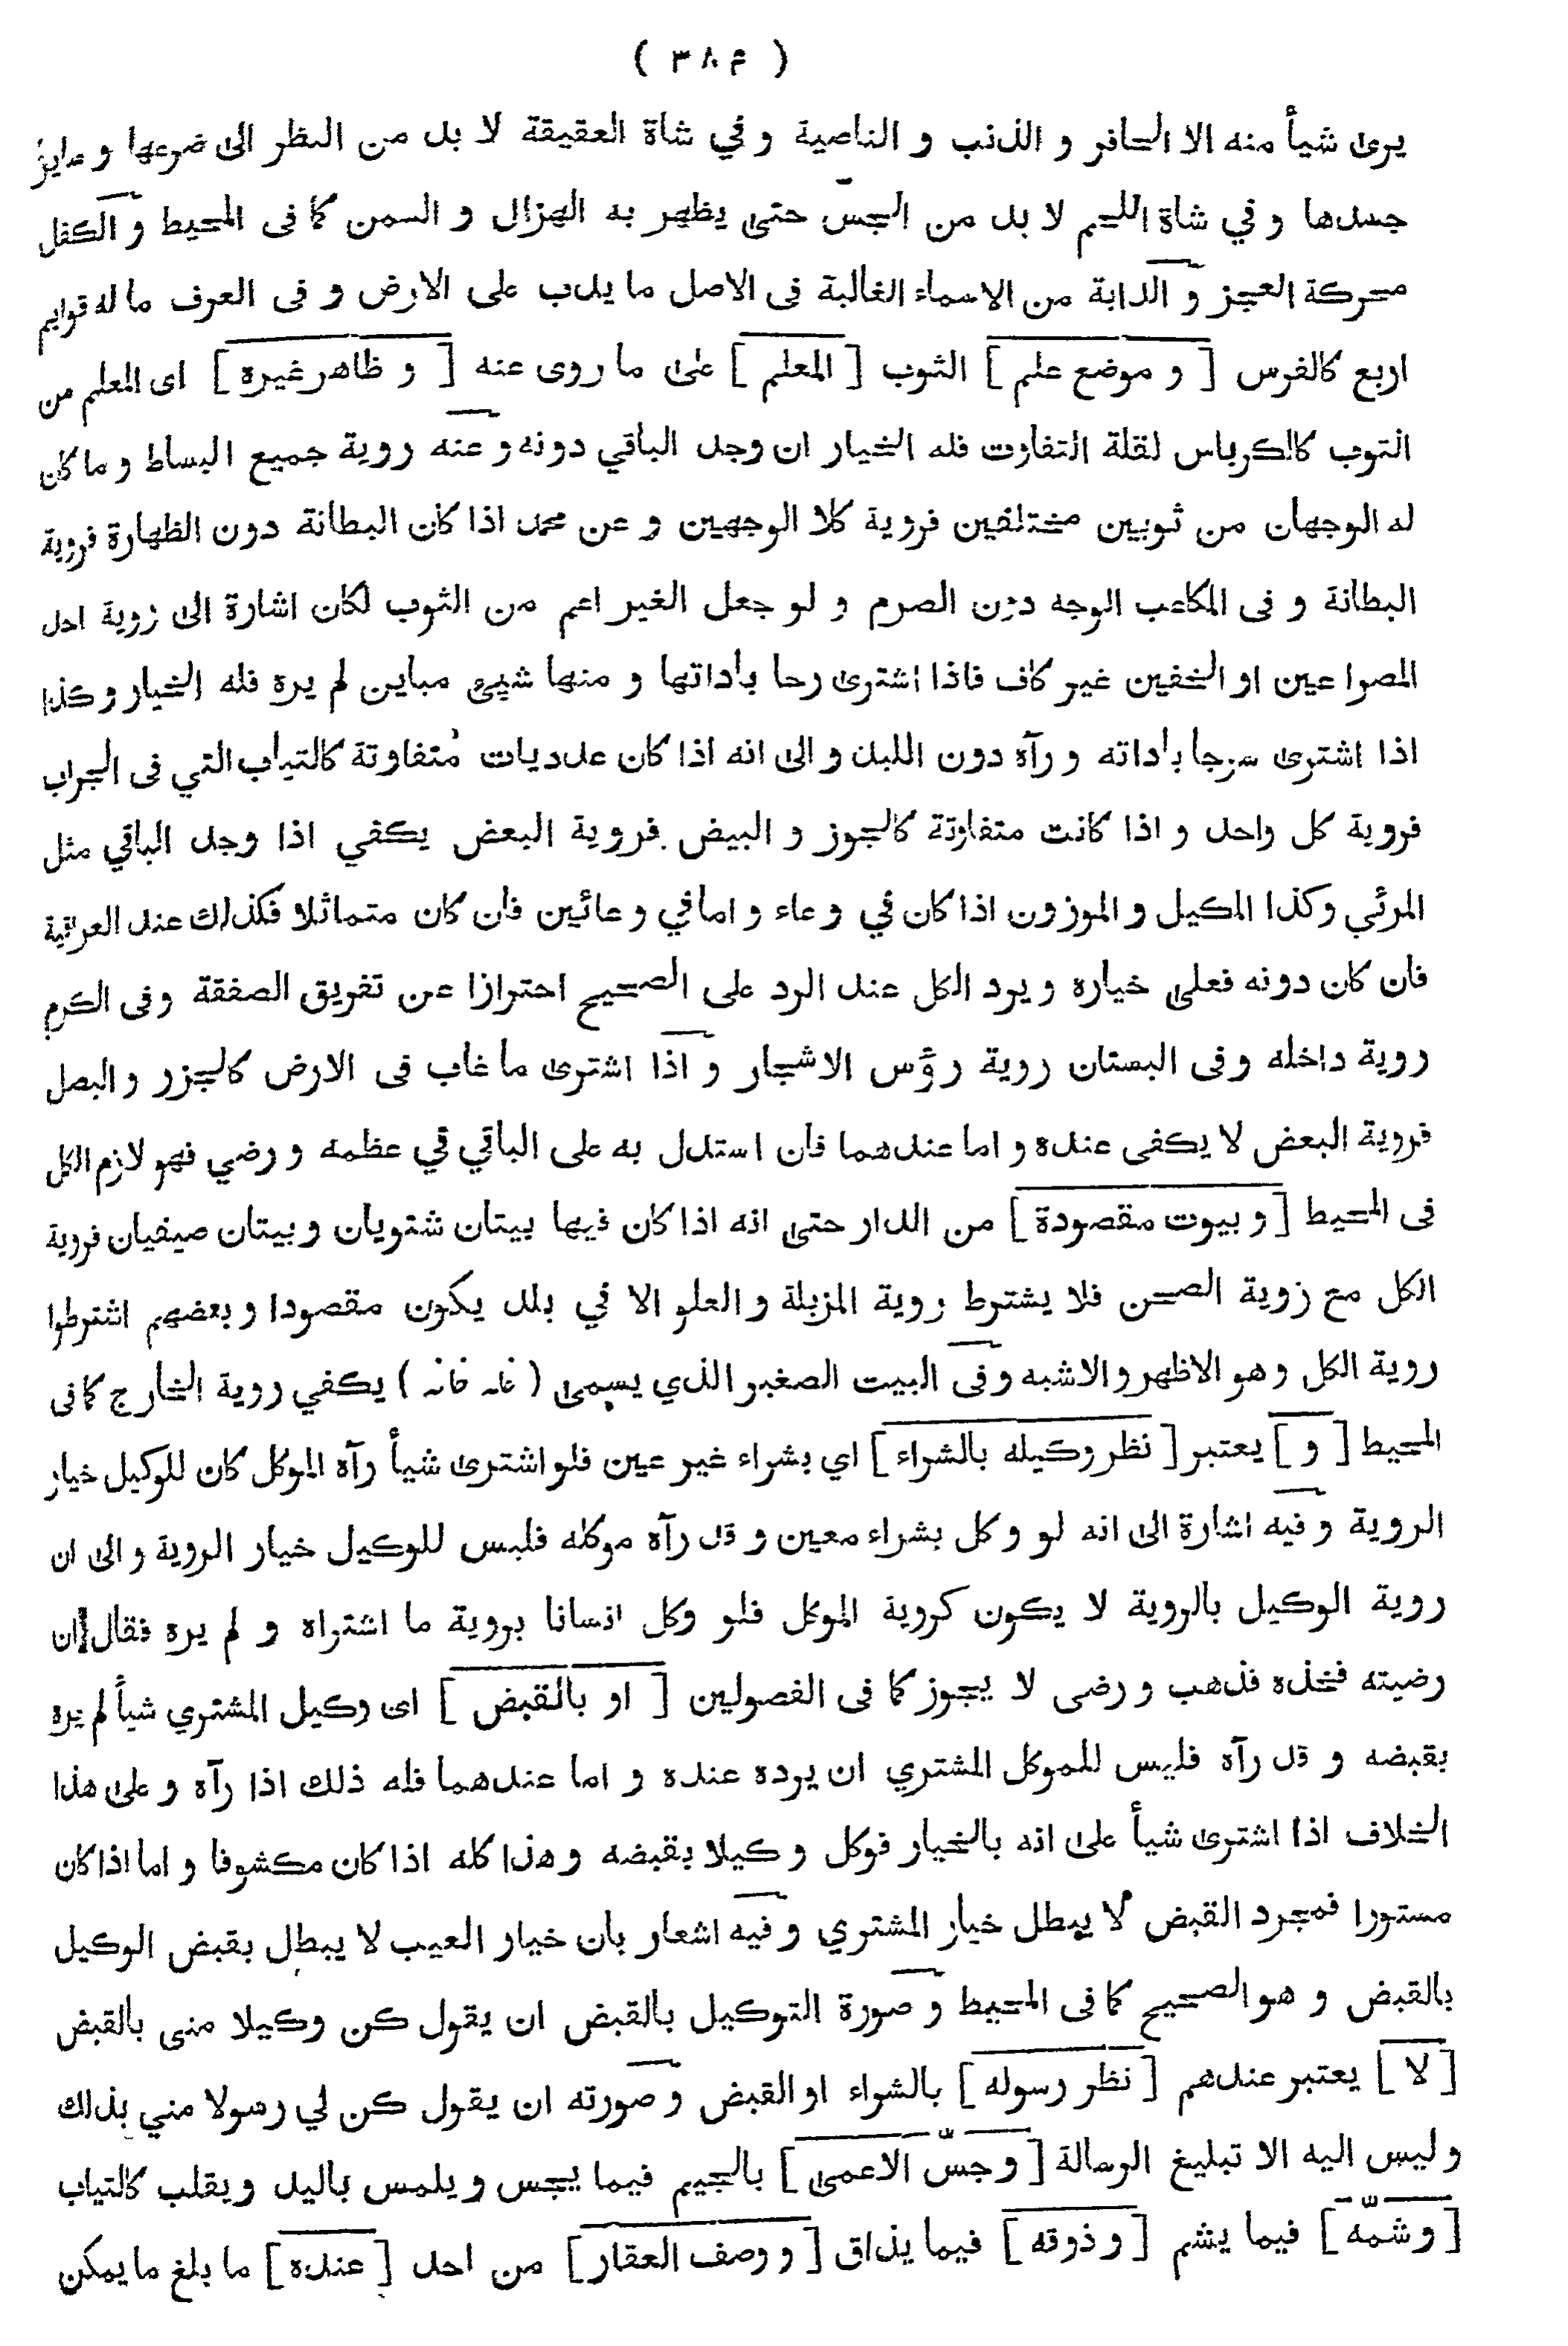 ( ٣٨٤ )
يرى شيأ منه الا الحافر و الذنب و الناصية و في شاة العقيقة لا بد من النظر الى ضرعها و سائر
جسدها و في شاة اللحم لا بد من الجسّ حتى يظهر به الهزال و السمن كما فى المحيط و الكفل
محركة العجز و الدابة من الاسماء الغالبة فى الاصل ما يدب على الارض و فى العرف ما له قوايم
اربع كالفرس [ و موضع علم ] الثوب [ المعلم ] على ما روى عنه [ و ظاهر غيره ] اى المعلم من
الثوب كالكرباس لقلة التفاوت فله الخيار ان وجد الباقي دونه و عنه روية جميع البساط و ما كان
له الوجهان من ثوبين مختلفين فروية كلا الوجهين و عن محمد اذا كان البطانة دون الظهارة فروية
البطانة و فى المكاعب الوجه دون الصرم و لو جعل الغير اعم من الثوب لكان اشارة الى روية احد
المصراعين او الخفين غير كاف فاذا اشترى رحا بأداتها و منها شيئ مباين لم يره فله الخيار و كذا
اذا اشترى سرجا بأداته و رآه دون اللبد و الى انه اذا كان عدديات متفاوتة كالثياب التي فى الجراب
فروية كل واحد و اذا كانت متفاوتة كالجوز و البيض فروية البعض يكفي اذا وجد الباقي مثل
المرئي و كذا المكيل و الموزون اذا كان في وعاء و اما في وعائين فان كان متماثلا فكذلك عند العراقية
فان كان دونه فعلى خياره و يرد الكل عند الرد على الصحيح احترازا عن تفريق الصفقة وفى الكرم
روية داخله وفى البستان روية رؤس الاشجار و اذا اشترى ما غاب فى الارض كالجزر و البصل
فروية البعض لا يكفى عنده و اما عندهما فان استدل به على الباقي في عظمه و رضي فهو لازم الكل
فى المحيط [ و بيوت مقصودة ] من الدار حتى انه اذا كان فيها بيتان شتويان و بيتان صيفيان فروية
الكل مع روية الصحن فلا يشترط روية المزبلة و العلو الا في بلد يكون مقصودا و بعضهم اشترطوا
روية الكل و هو الاظهر و الاشبه وفى البيت الصغير الذي يسمى ( خانه ) يكفي روية الخارج كما فى
المحيط [ و ] يعتبر [ نظر وكيله بالشراء ] اي بشراء غير عين فلو اشترى شيأ رآه الموكل كان للوكيل خيار
الروية و فيه اشارة الى انه لو وكل بشراء معين و قد رآه موكله فليس للوكيل خيار الروية و الى ان
روية الوكيل بالروية لا يكون كروية الموكل فلو وكل انسانا بروية ما اشتراه و لم يره فقال ان
رضيته فخذه فذهب و رضى لا يجوز كما فى الفصولين [ او بالقبض ] اى وكيل المشتري شيأ لم يره
بقبضه و قد رآه فليس للموكل المشتري ان يرده عنده و اما عندهما فله ذلك اذا رآه و على هذا
الخلاف اذا اشترى شيأ على انه بالخيار فوكل وكيلا بقبضه و هذا كله اذا كان مكشوفا و اما اذا كان
مستورا فمجرد القبض لا يبطل خيار المشتري و فيه اشعار بان خيار العيب لا يبطل بقبض الوكيل
بالقبض و هو الصحيح كما فى المحيط و صورة التوكيل بالقبض ان يقول كن وكيلا منى بالقبض
[ لا ] يعتبر عندهم [ نظر رسوله ] بالشراء او القبض و صورته ان يقول كن لي رسولا مني بذلك
و ليس اليه الا تبليغ الرسالة [ و جسّ الاعمى ] بالجيم فيما يجس و يلمس باليد و يقلب كالثياب
[ و شمّه ] فيما يشم [ و ذوقه ] فيما يذاق [ و وصف العقار ] من احد [ عنده ] ما بلغ ما يمكن